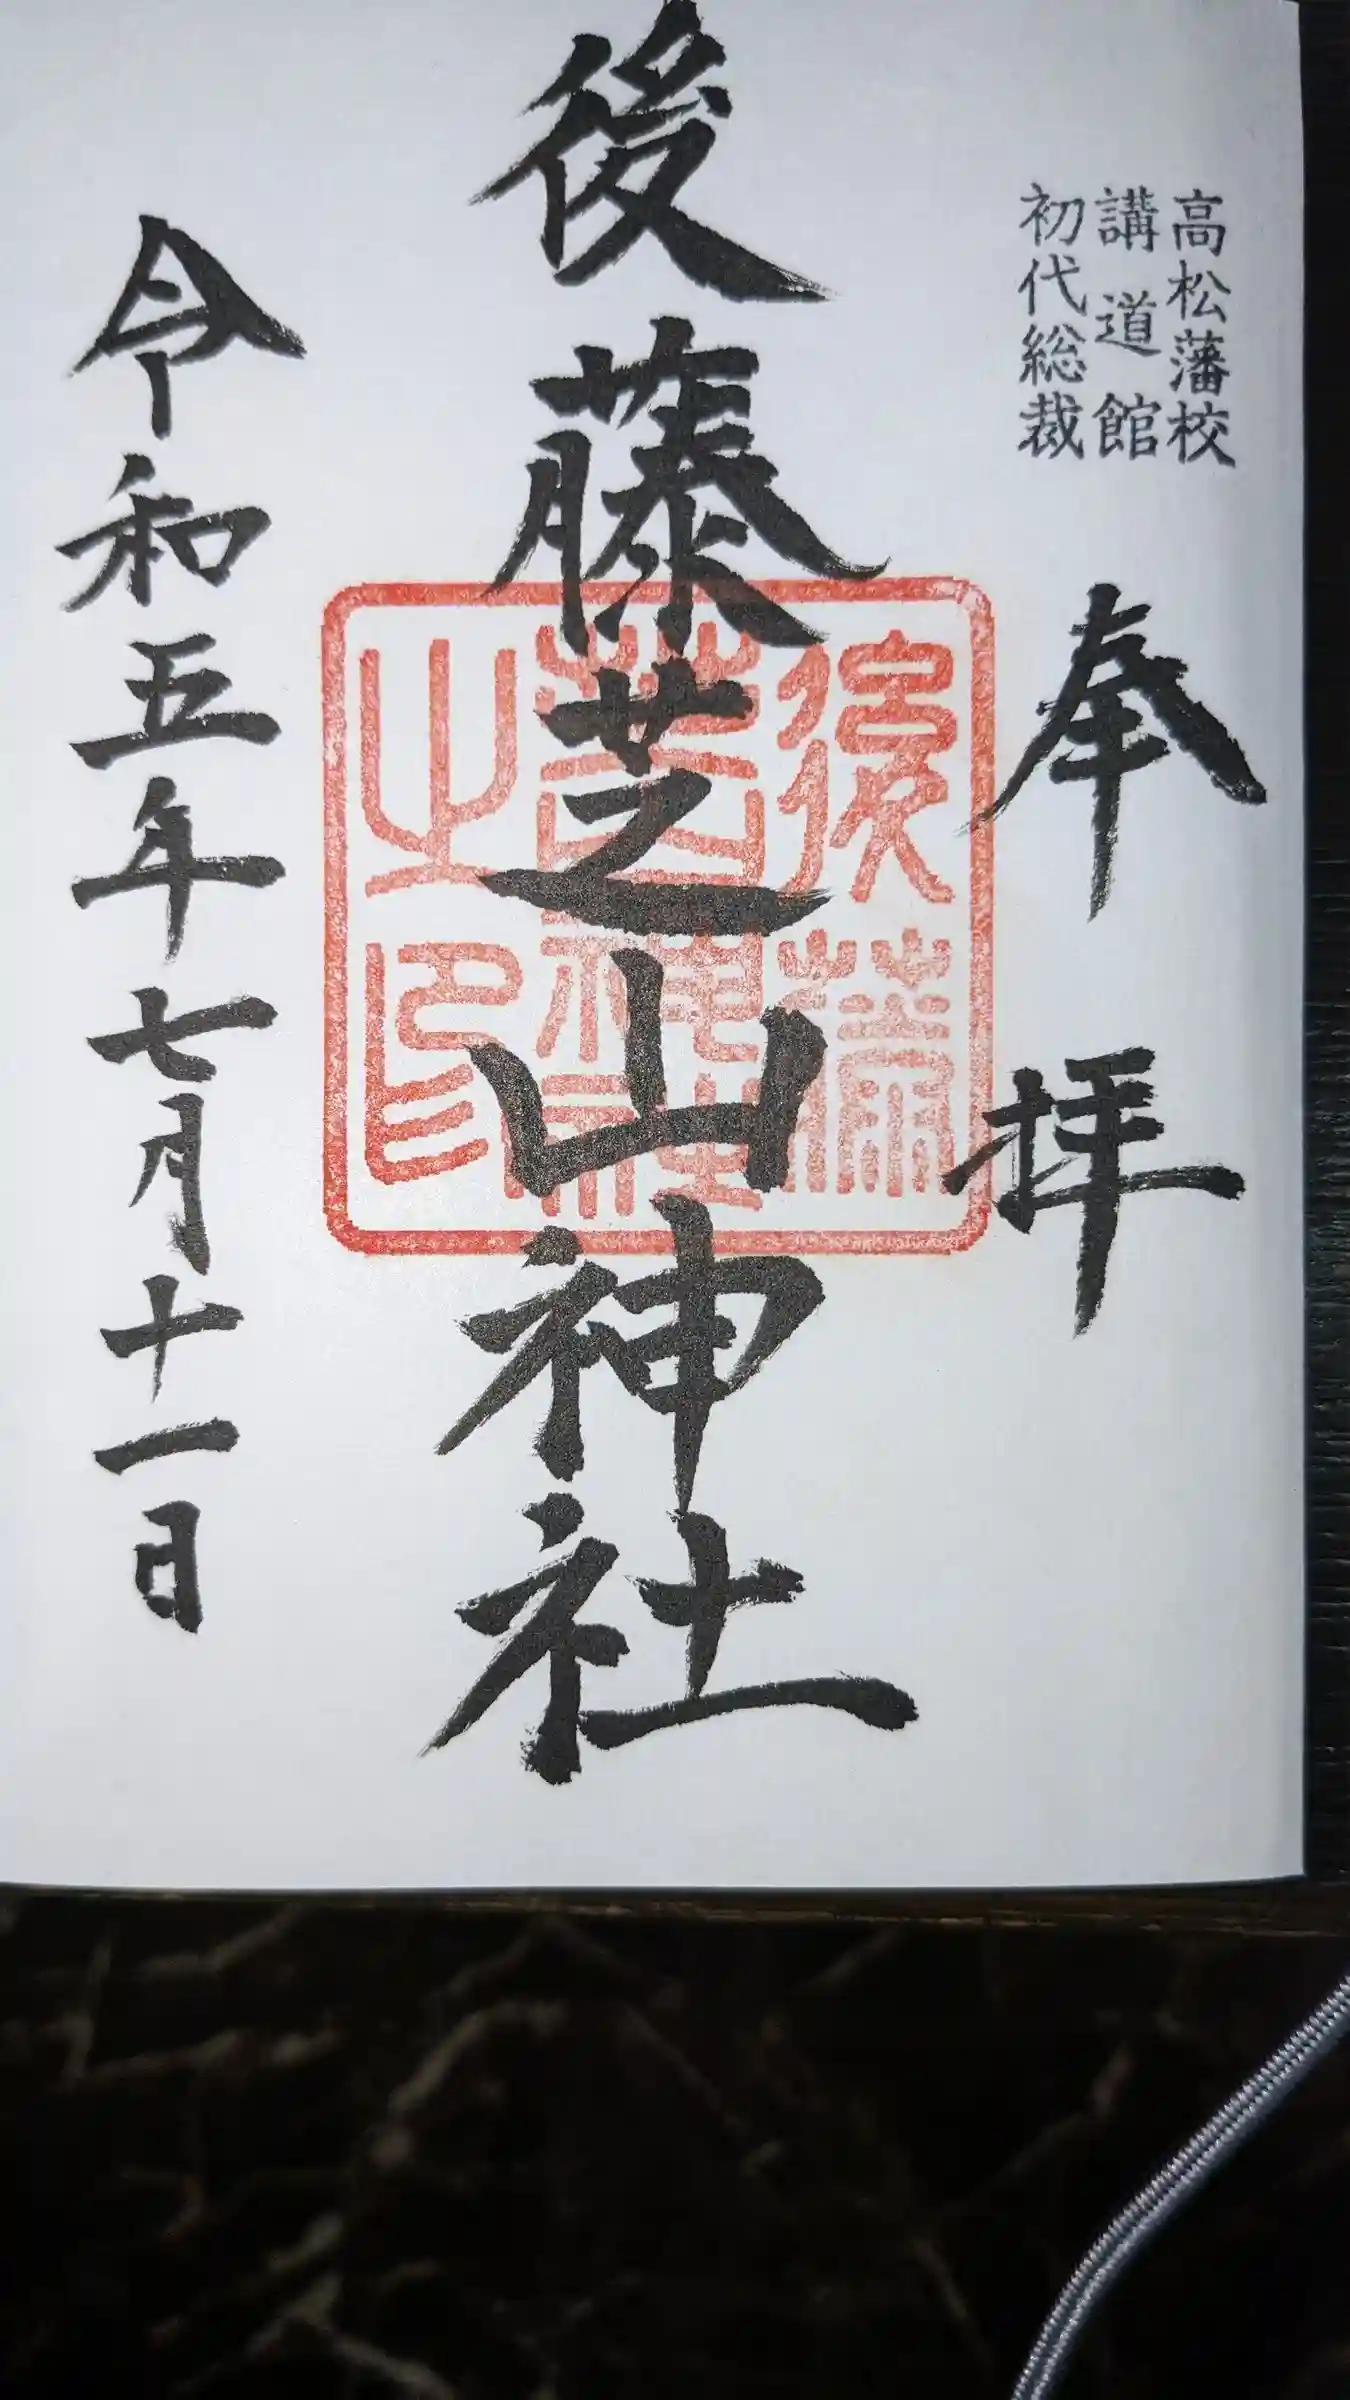 高松藩校
講道館
初代総裁
奉拝
後藤芝山神社
後藤
芝山神社
之印
令和五年七月十一日